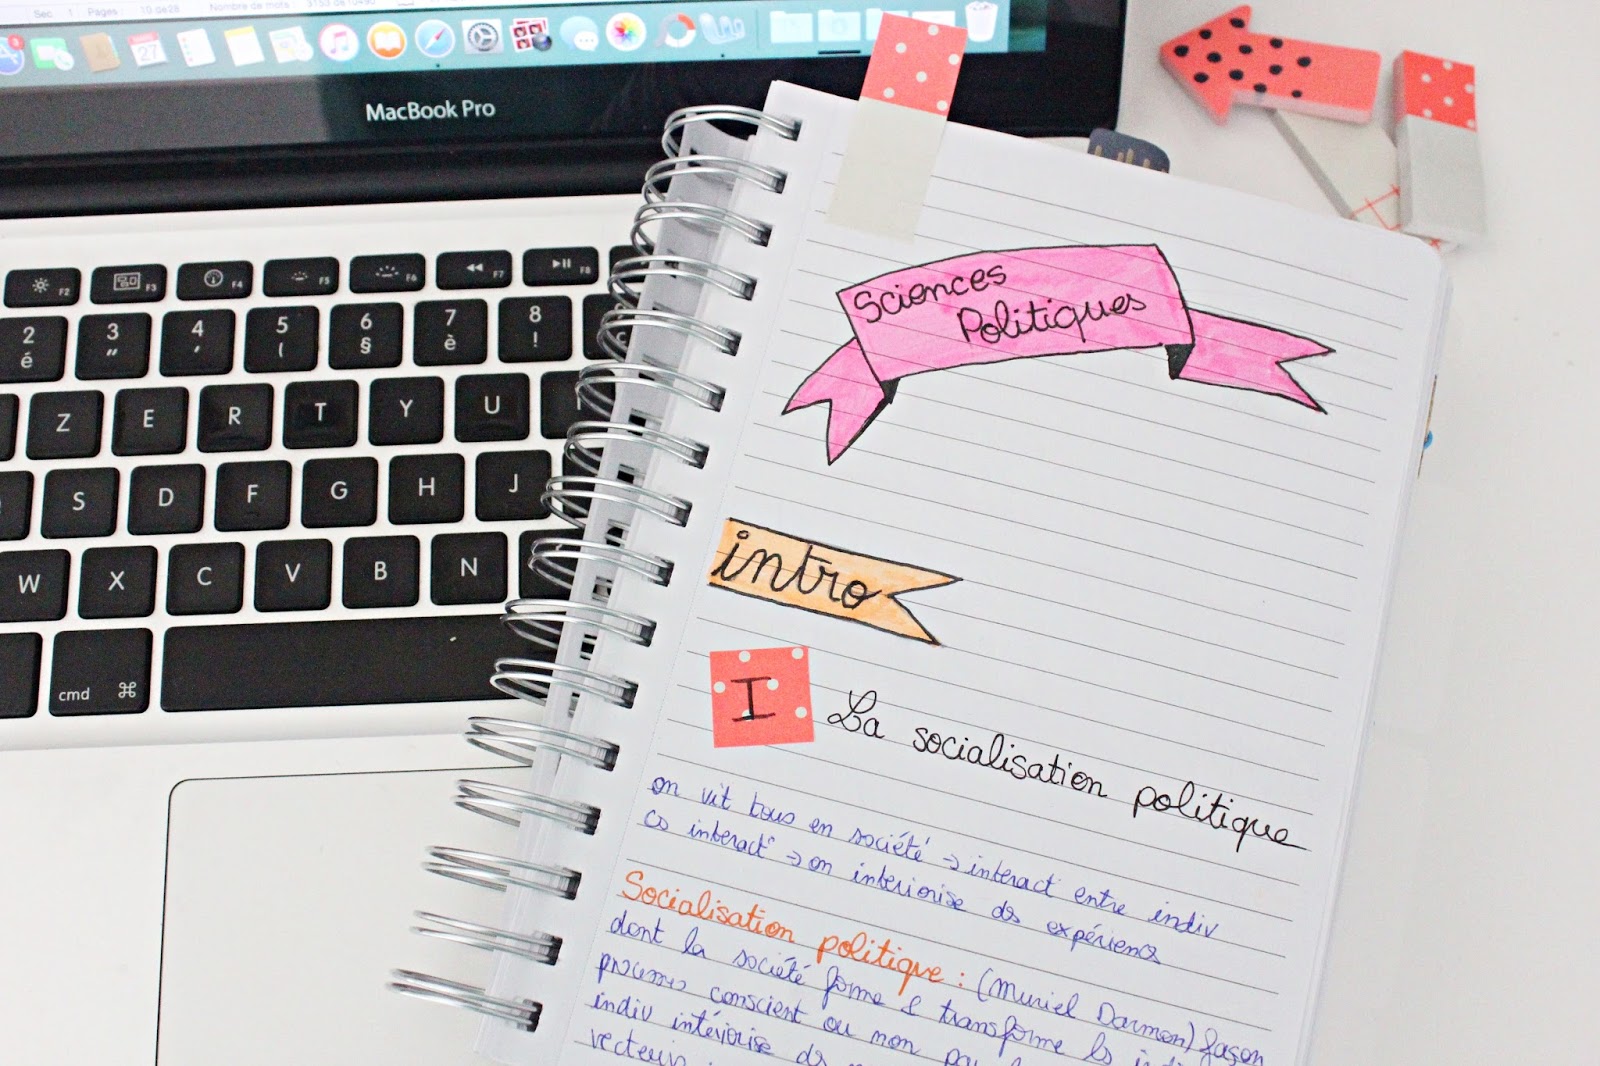 Sec 1 Pages : 10 de 28 Nombre de mots : 3153 de 10490
27
MacBook Pro
F2 F3 F4 F5 F6 F7 F8
2 3 4 5 6 7 8
é " ' ( § è !
Z E R T Y U
S D F G H J
W X C V B N
cmd ⌘
Sciences
Politiques
intro
I La socialisation politique
on vit tous en société → interact° entre indiv
cs interact° → on interiorise ds expérience
Socialisation politique : (Muriel Darmon) façon
dont la société forme & transforme ls
process conscient ou non
indiv intériorise ds
vecteurs :